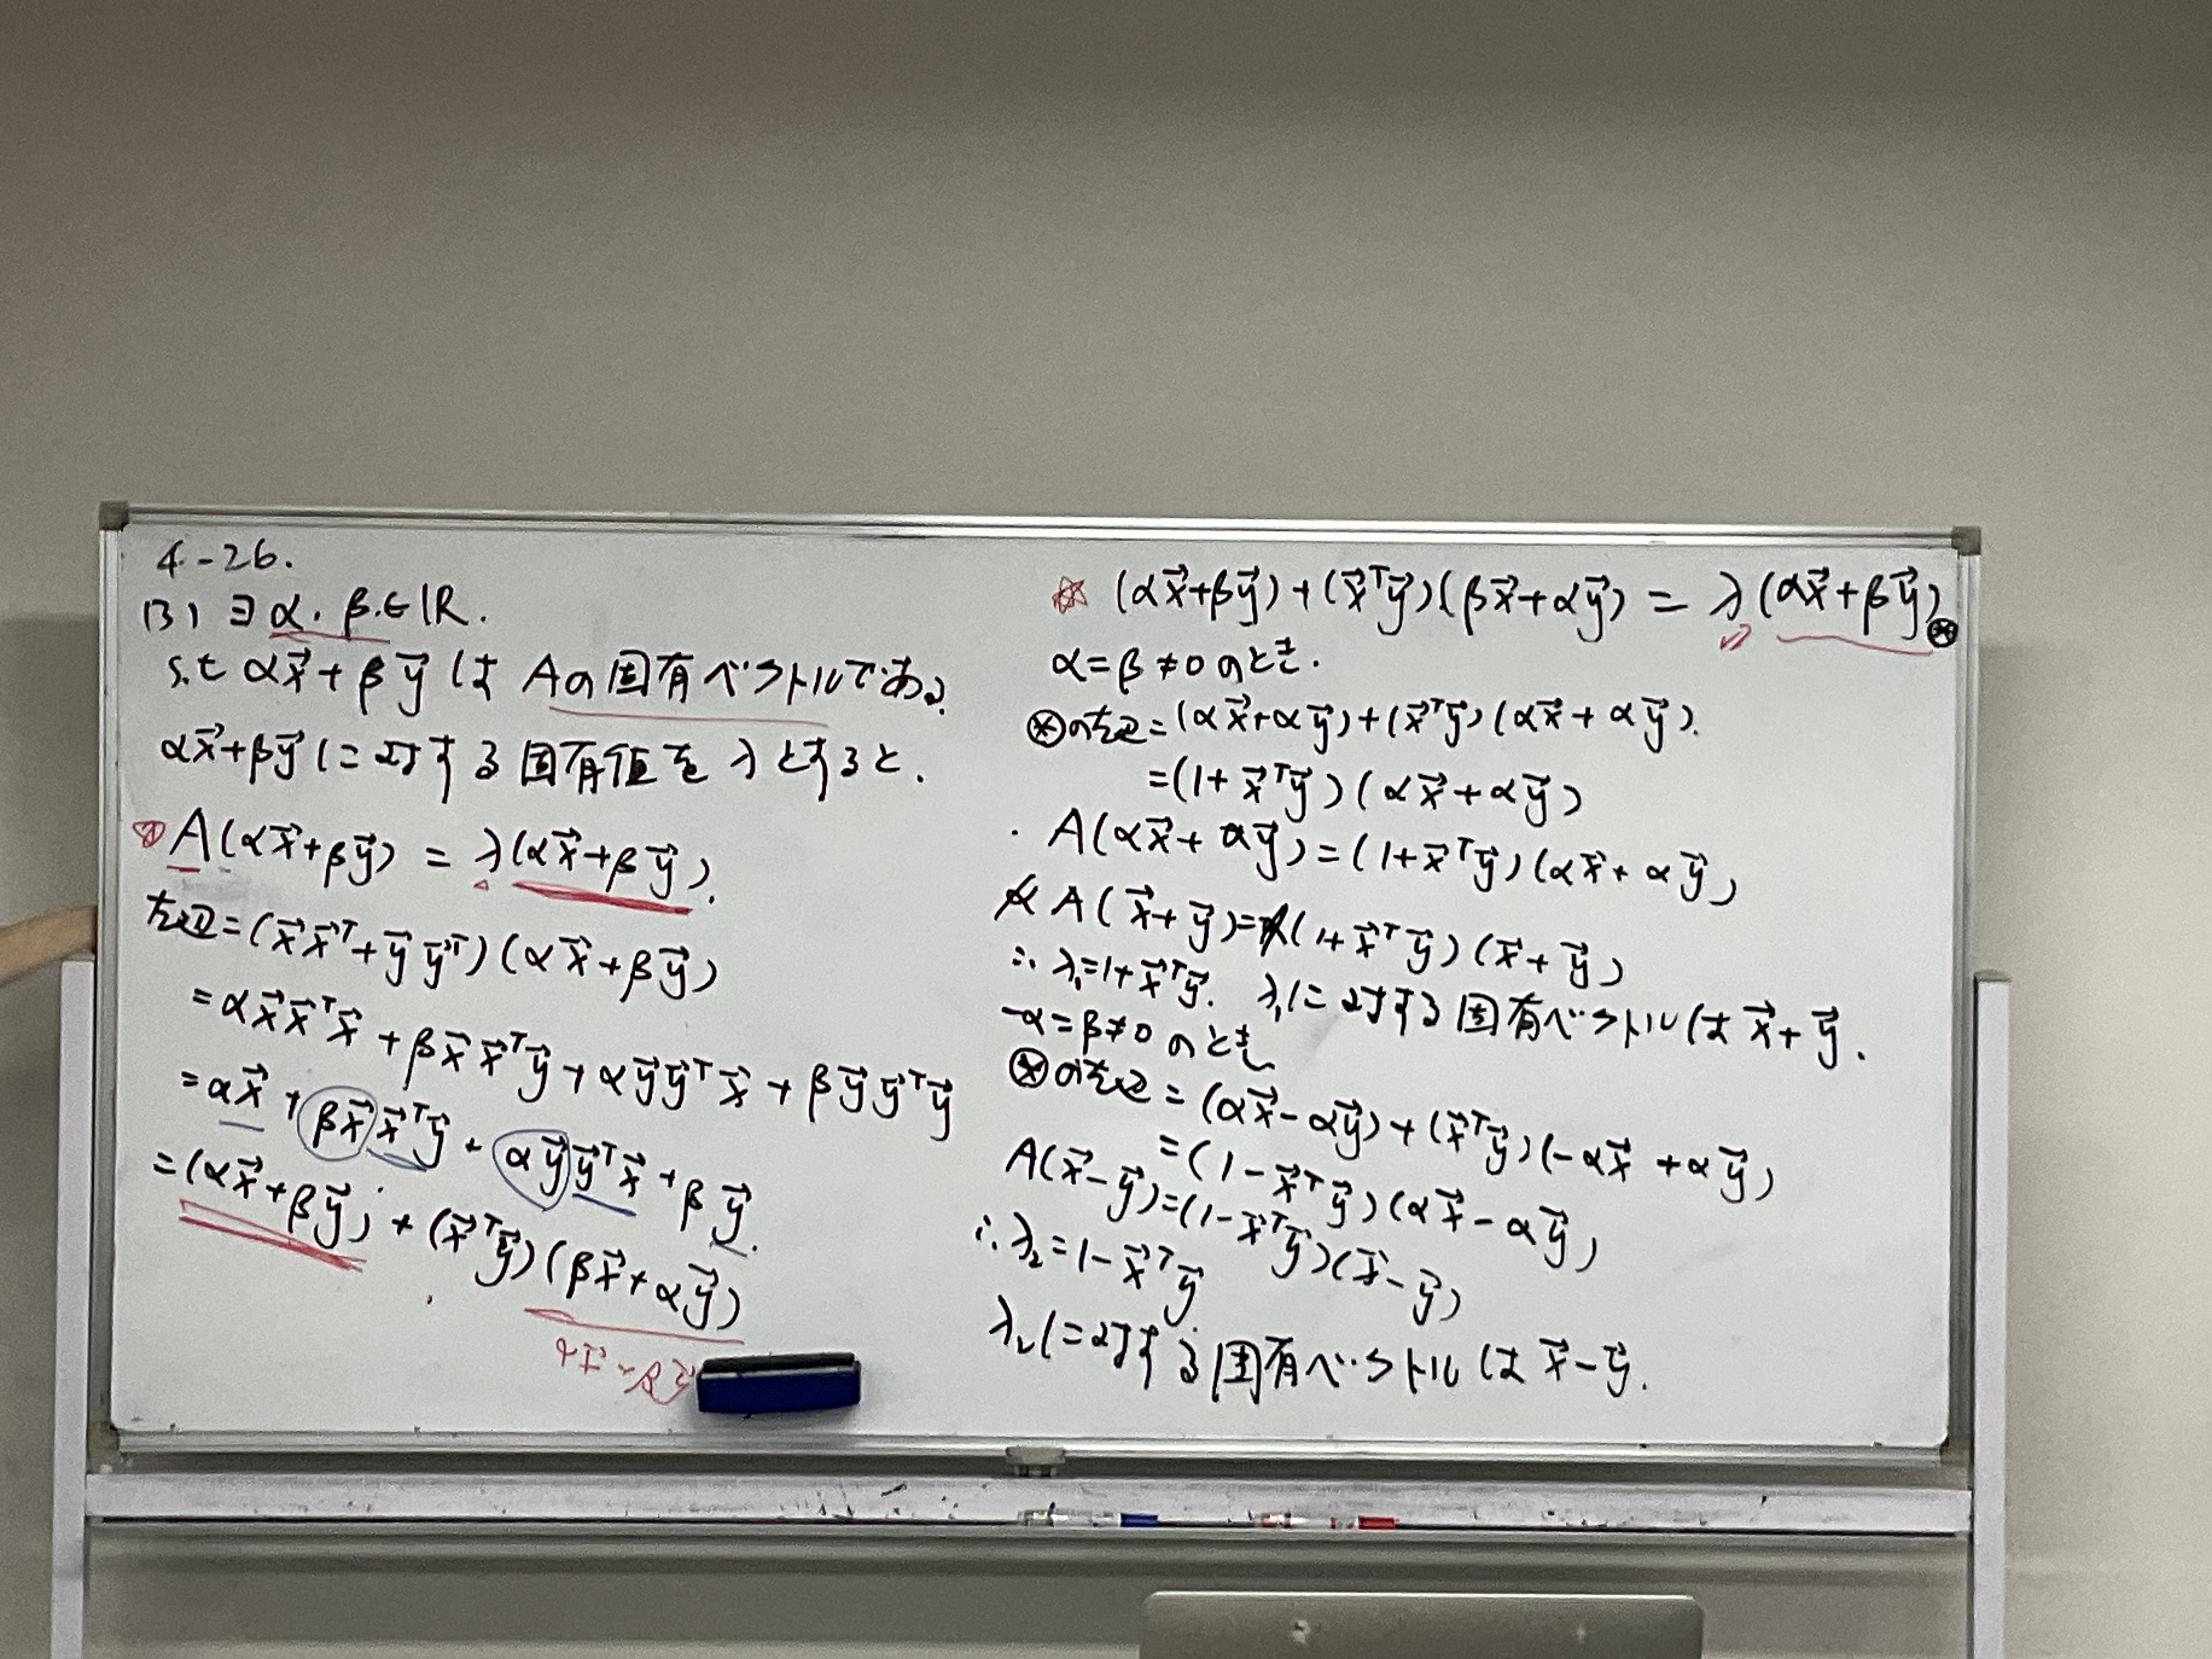 4-26.
(3) ∃α. β.∈ℝ.
s.t αx⃗+βy⃗ は Aの固有ベクトルである.
αx⃗+βy⃗に対する固有値をλとすると.
A(αx⃗+βy⃗) = λ(αx⃗+βy⃗).
左辺=(x⃗x⃗ᵀ+y⃗y⃗ᵀ)(αx⃗+βy⃗)
=αx⃗x⃗ᵀx⃗+βx⃗x⃗ᵀy⃗+αy⃗y⃗ᵀx⃗+βy⃗y⃗ᵀy⃗
=αx⃗+βx⃗x⃗ᵀy⃗+αy⃗y⃗ᵀx⃗+βy⃗.
=(αx⃗+βy⃗)+(x⃗ᵀy⃗)(βx⃗+αy⃗)
☆ (αx⃗+βy⃗)+(x⃗ᵀy⃗)(βx⃗+αy⃗) = λ(αx⃗+βy⃗) ⊛
α=β≠0のとき.
⊛の左辺=(αx⃗+αy⃗)+(x⃗ᵀy⃗)(αx⃗+αy⃗).
=(1+x⃗ᵀy⃗)(αx⃗+αy⃗)
A(αx⃗+αy⃗)=(1+x⃗ᵀy⃗)(αx⃗+αy⃗)
A(x⃗+y⃗)=(1+x⃗ᵀy⃗)(x⃗+y⃗)
∴λ₁=1+x⃗ᵀy⃗. λ₁に対する固有ベクトルは x⃗+y⃗.
-α=β≠0 のとき
⊛の左辺=(αx⃗-αy⃗)+(x⃗ᵀy⃗)(-αx⃗+αy⃗)
=(1-x⃗ᵀy⃗)(αx⃗-αy⃗)
A(x⃗-y⃗)=(1-x⃗ᵀy⃗)(x⃗-y⃗)
∴λ₂=1-x⃗ᵀy⃗
λ₂に対する固有ベクトルは x⃗-y⃗.